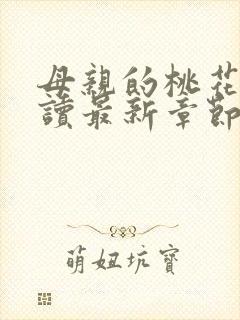 母親的桃花
讀最新章節
萌妞坑寶